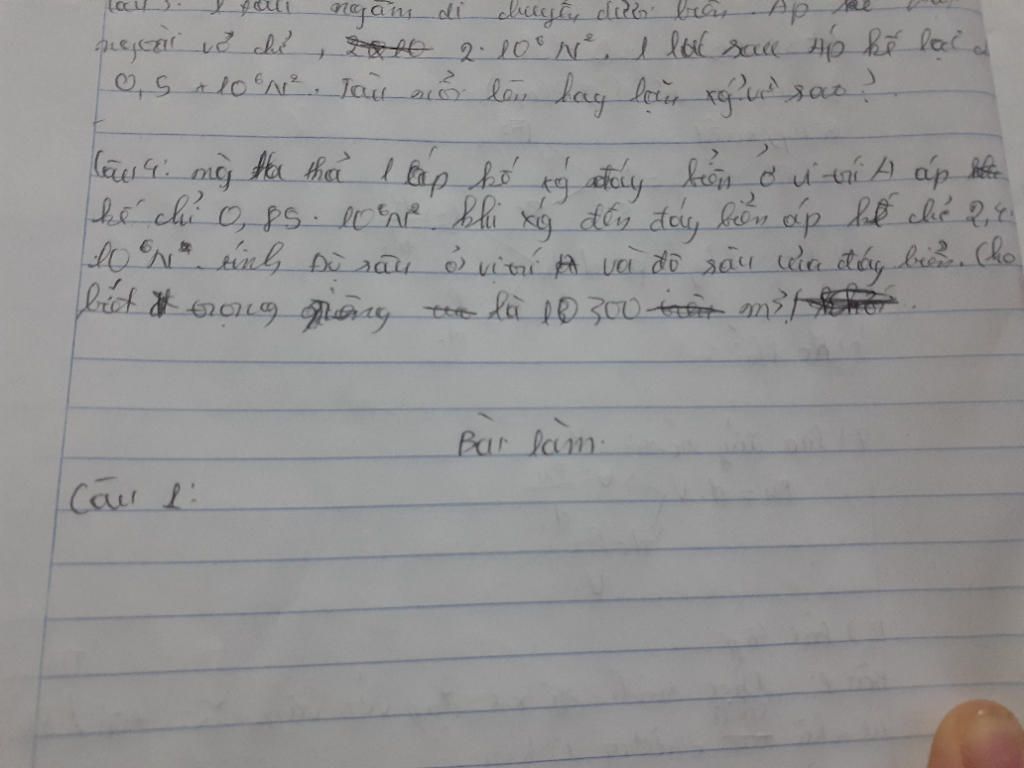 Câu 3: 1 tàu ngầm di chuyển dưới biển. Áp kế
ngoài vỏ chỉ, 2.10⁶N². 1 lúc sau Áp kế lại
0,5 *10⁶N². Tàu nổi lên hay lặn xg? vì sao?
Câu 4: mg thả 1 áp kế xg đáy biển ở vị trí A áp
kế chỉ 0,85.10⁶N². khi xg đến đáy biển áp kế chỉ 2,4.
10⁶N². tính Độ sâu ở vị trí A và độ sâu của đáy biển. Cho
biết trọng là 10300 m³
Bài làm.
Câu 1: